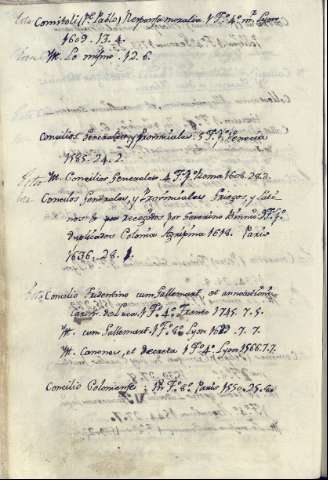 Comitoli (Pe. Paolo) Responsa moralia 1 Fo. 4o. Lyon
1609. 13. 4.
It. Lo mismo. 12. 6.
Concilios Generales y Provinciales. 5 Fo. Venecia
1585. 24. 2.
It. Concilios Generales 4 Fo. Roma 1608. 28.
Concilios Generales, y Provinciales Griegos, y Lati-
nos por Severino Binnio
duplicados Colonia Agripina 1618. Paris
1636. 28.
Concilio Tridentino cum Gallemart, et
Card. de Luca. 1 Fo. 4o. Trento 1745. 7. 5.
It. cum Gallemart. 1 Fo. 8o. Lyon 7. 7.
It. Canones, et decreta 1 Fo. 4o. Lyon 1566. 7. 7.
Concilio Coloniense 1 Fo. 8o. Paris 1550. 25.